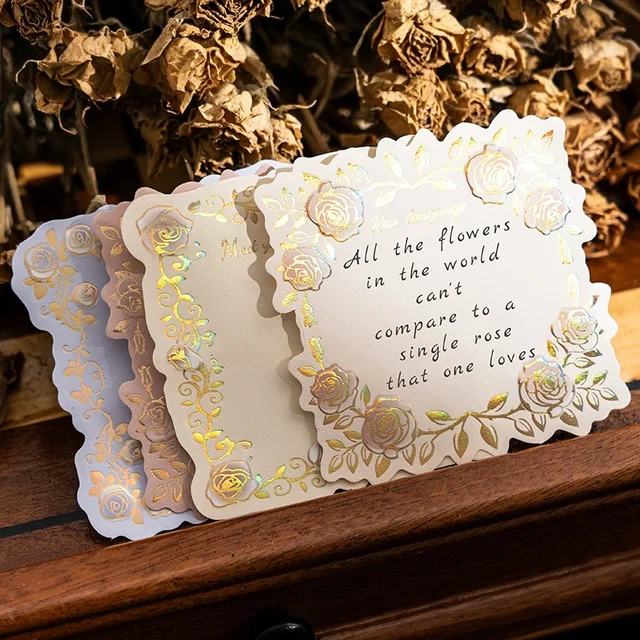 All the flowers
in the world
can't
compare to a
single rose
that one loves